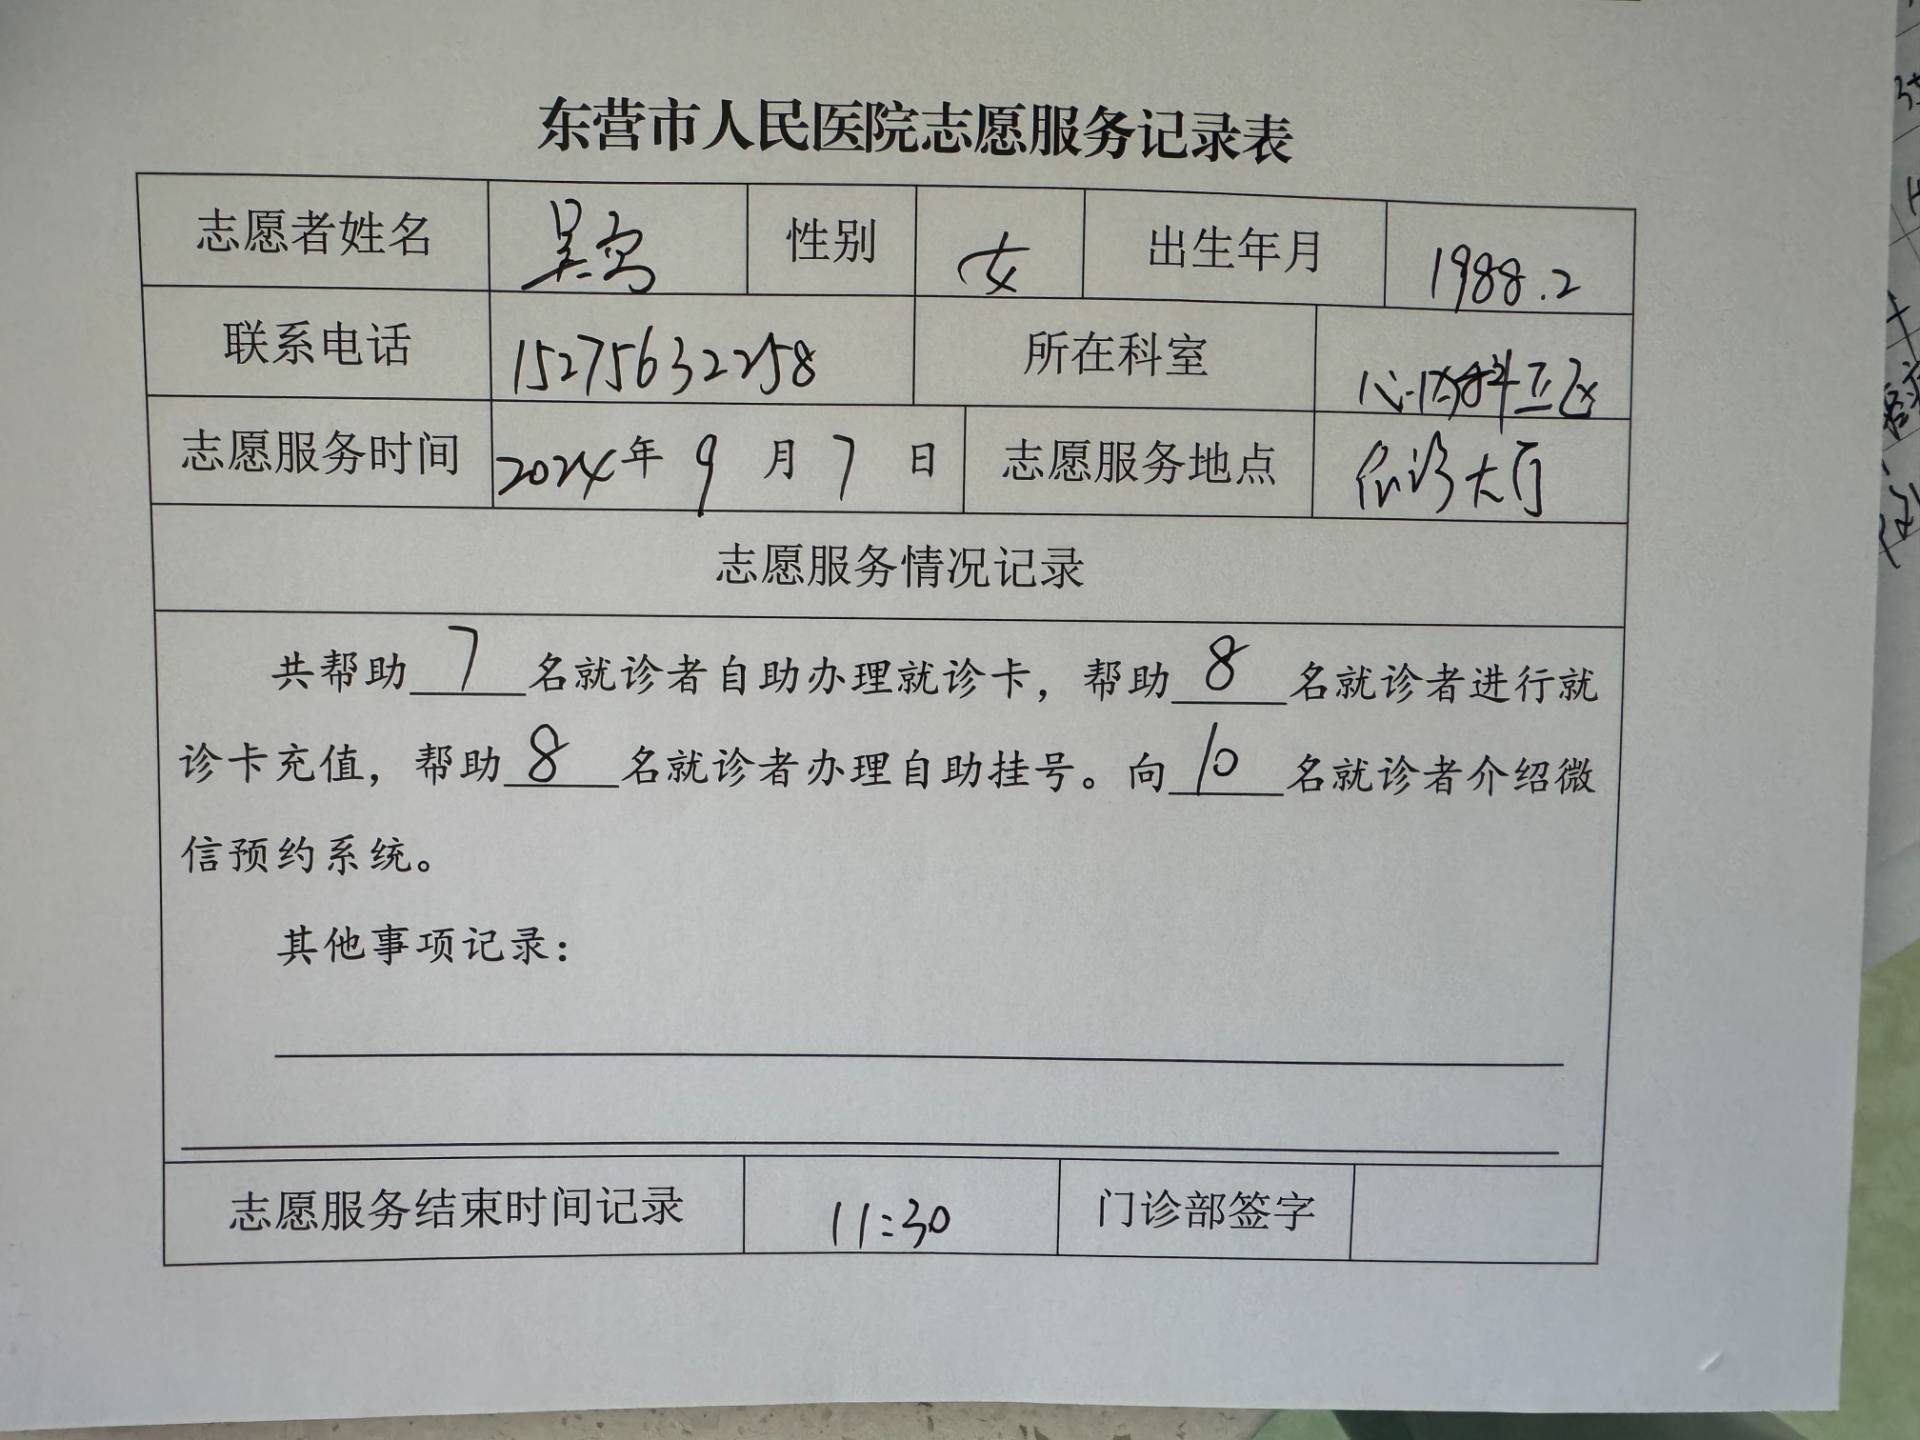 东营市人民医院志愿服务记录表
志愿者姓名 吴 性别 女 出生年月 1988.2
联系电话 15275632258 所在科室 心内科三区
志愿服务时间 2024年 9 月 7 日 志愿服务地点 门诊大厅
志愿服务情况记录
共帮助 7 名就诊者自助办理就诊卡，帮助 8 名就诊者进行就
诊卡充值，帮助 8 名就诊者办理自助挂号。向 10 名就诊者介绍微
信预约系统。
其他事项记录：
志愿服务结束时间记录 11:30 门诊部签字